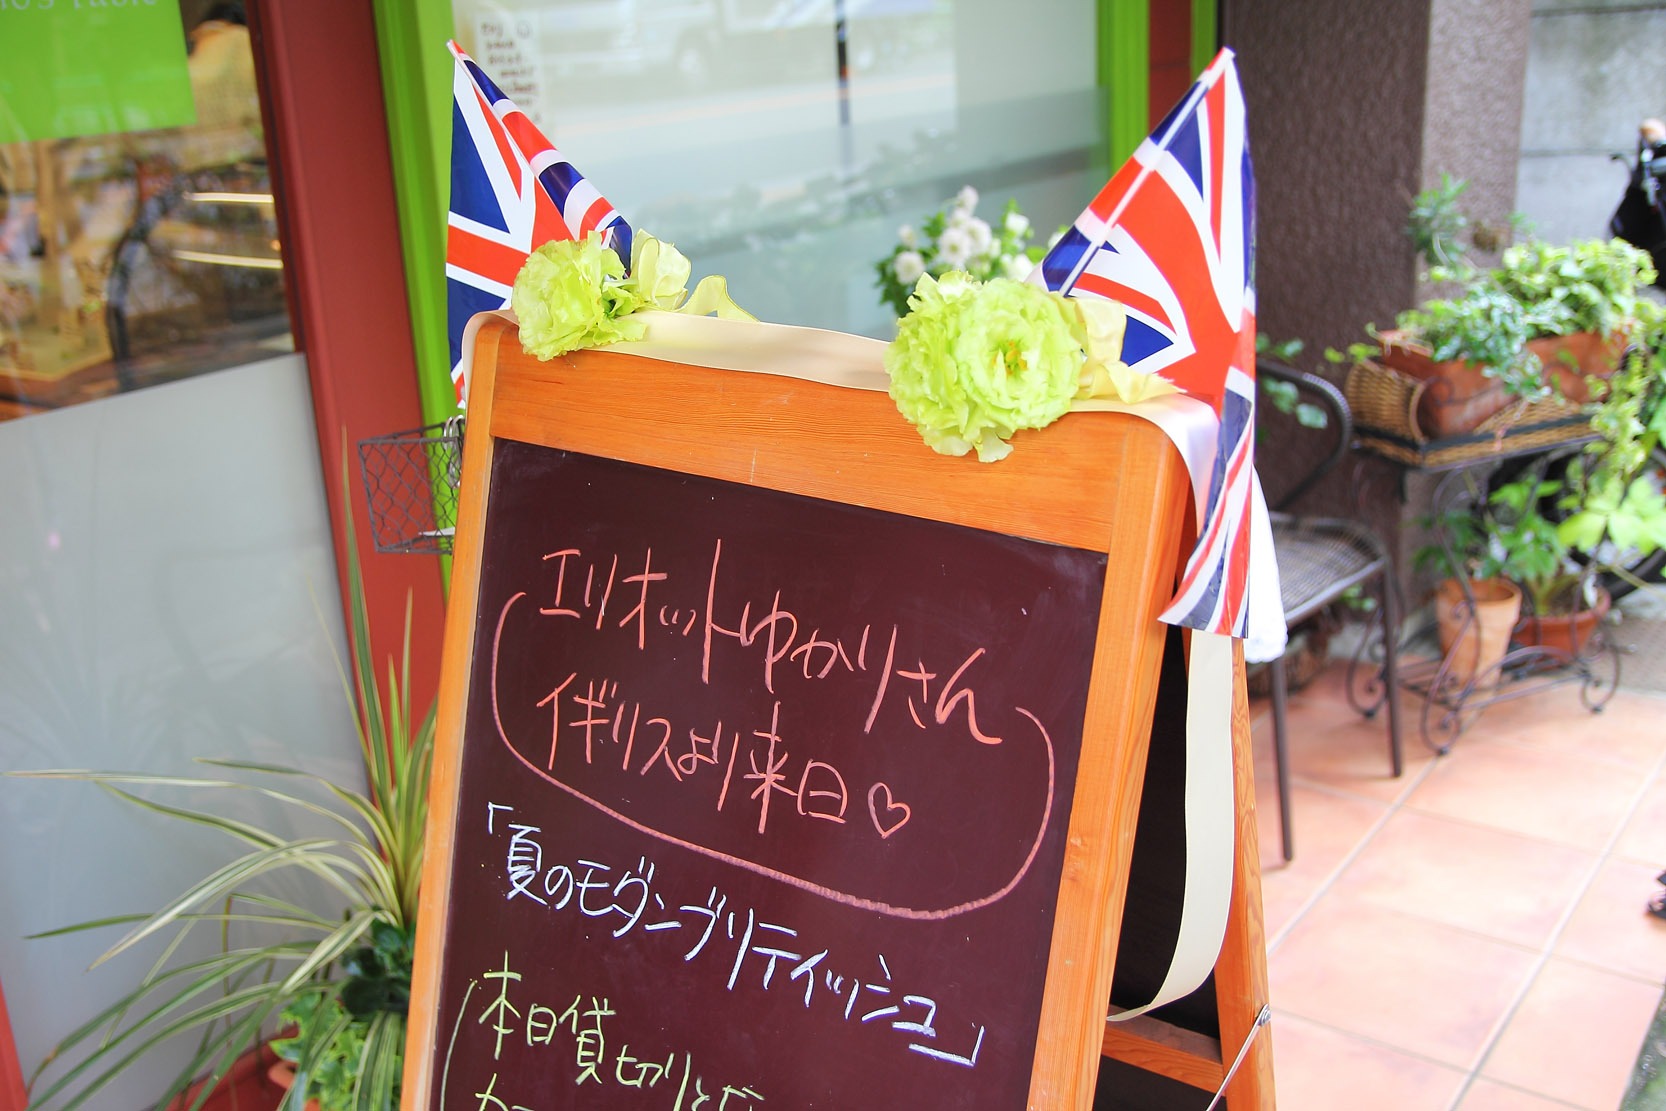 エリオットゆかりさん
イギリスより来日♡
「夏のモダンブリティッシュ」
本日貸切りと